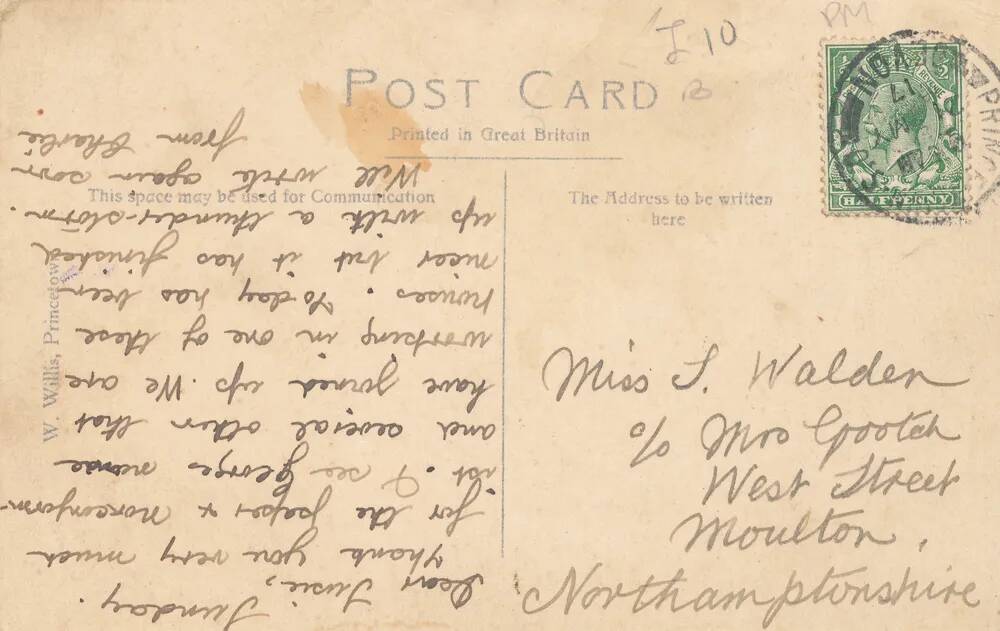 £10
PM
B
POST CARD
Printed in Great Britain
This space may be used for Communication
The Address to be written
here
W. Willis, Princetown
HALFPENNY
Sunday.
Dear Susie,
Thank you very much
for the paper & Nonconform-
ist. I see Georges name
and several other that
have joined up. We are
working in one of these
houses. To day has been
nicer but it has finished
up with a thunder-storm.
Will write again soon
from Charlie
Miss S. Walden
c/o Mrs Gootch
West Street
Moulton,
Northamptonshire